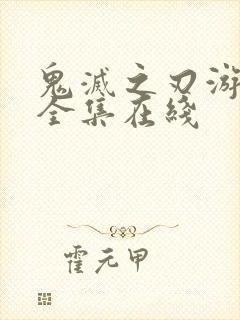 鬼滅之刃游
全集在綫
霍元甲